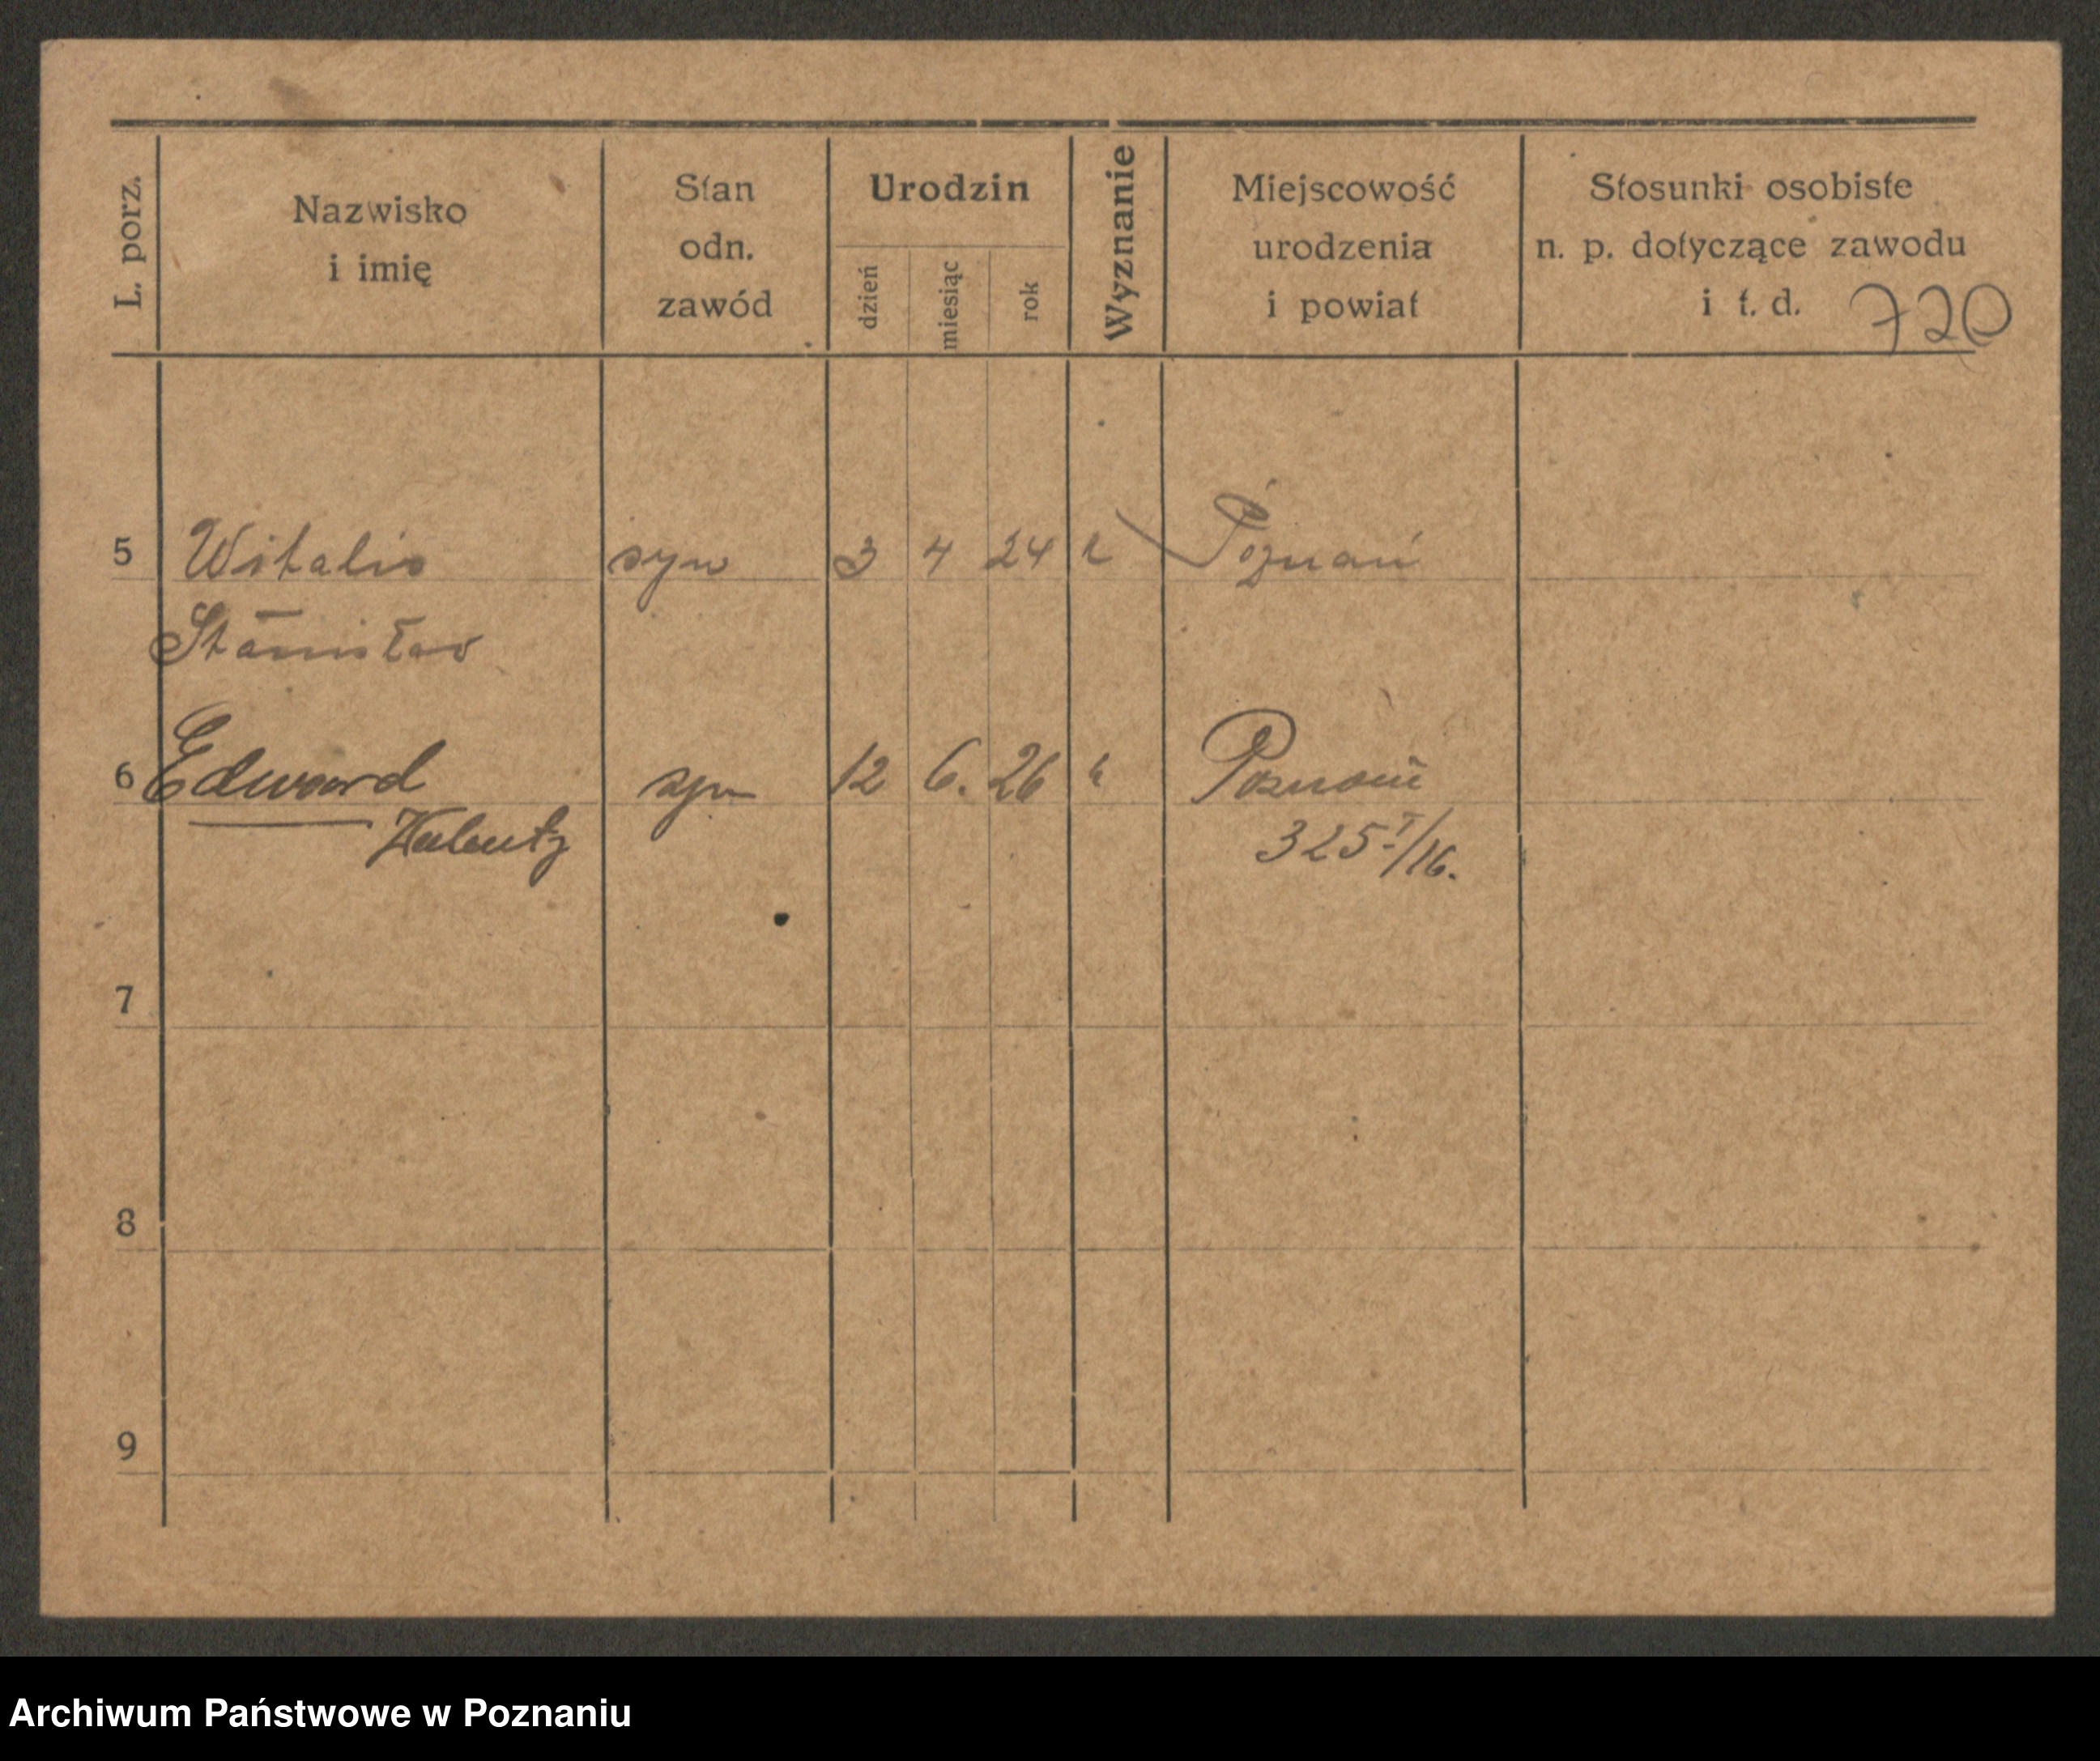 L. porz.
Nazwisko
i imię
Stan
odn.
zawód
Urodzin
dzień
miesiąc
rok
Wyznanie
Miejscowość
urodzenia
i powiat
Stosunki osobiste
n. p. dotyczące zawodu
i t. d. 720
5 Witalis syn 3 4 24 Poznań
Stanisław
6 Edward syn 12 6. 26 Poznań
325 I/16.
7
8
9
Archiwum Państwowe w Poznaniu